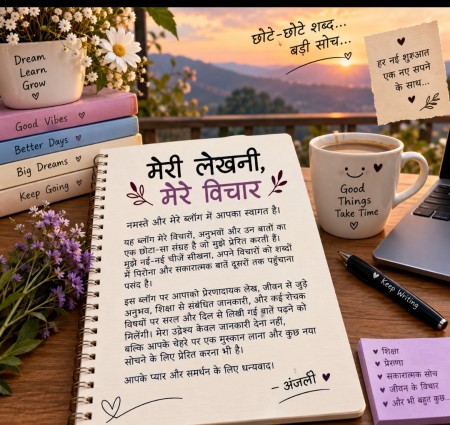 छोटे-छोटे शब्द...
बड़ी सोच...
हर नई शुरुआत
एक नए सपने
के साथ...
Dream
Learn
Grow
Good Vibes
Better Days
Big Dreams
Keep Going
मेरी लेखनी,
मेरे विचार
नमस्ते और मेरे ब्लॉग में आपका स्वागत है।
यह ब्लॉग मेरे विचारों, अनुभवों और उन बातों का
एक छोटा-सा संग्रह है जो मुझे प्रेरित करती हैं।
मुझे नई-नई चीजें सीखना, अपने विचारों को शब्दों
में पिरोना और सकारात्मक बातें दूसरों तक पहुँचाना
पसंद है।
इस ब्लॉग पर आपको प्रेरणादायक लेख, जीवन से जुड़े
अनुभव, शिक्षा से संबंधित जानकारी, और कई रोचक
विषयों पर सरल और दिल से लिखी गई बातें पढ़ने को
मिलेंगी। मेरा उद्देश्य केवल जानकारी देना नहीं,
बल्कि आपके चेहरे पर एक मुस्कान लाना और कुछ नया
सोचने के लिए प्रेरित करना भी है।
आपके प्यार और समर्थन के लिए धन्यवाद।
– अंजली
Good
Things
Take Time
Keep Writing
शिक्षा
प्रेरणा
सकारात्मक सोच
जीवन के विचार
और भी बहुत कुछ...